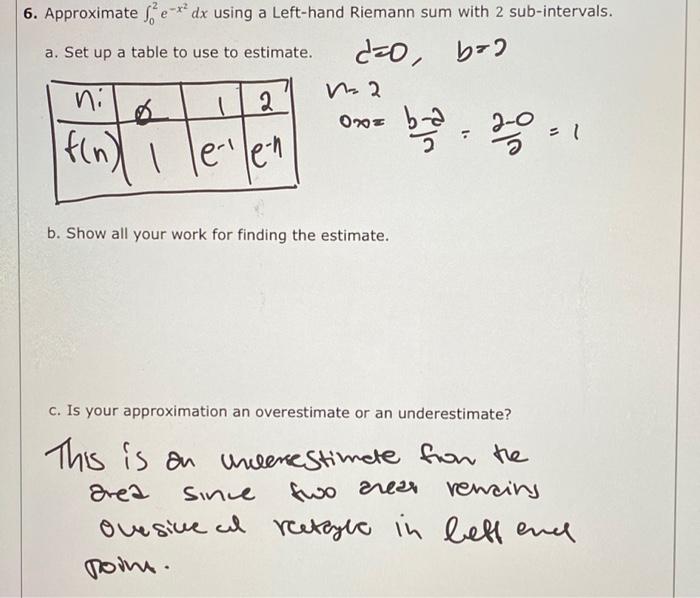 6. Approximate ∫₀² e^{-x²} dx using a Left-hand Riemann sum with 2 sub-intervals.
a. Set up a table to use to estimate.
a=0, b=2
n=2
Δx= b-a/2 = 2-0/2 = 1
ni 0 1 2
f(n) 1 e^{-1} e^{-4}
b. Show all your work for finding the estimate.
c. Is your approximation an overestimate or an underestimate?
This is an underestimate from the
area since two areas remains
outside of rectangle in left end
point.